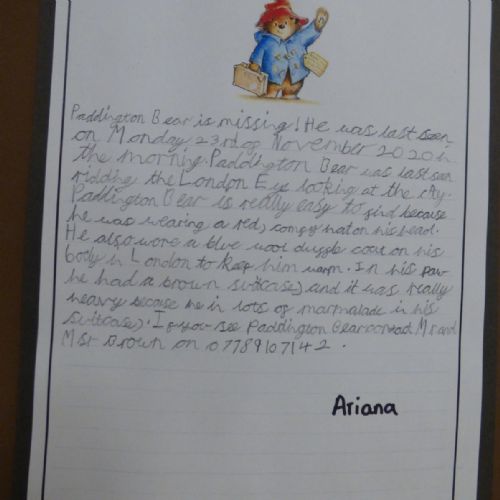 Paddington Bear is missing! He was last seen
on Monday 23rd of November 2020 in
the morning. Paddington Bear was last seen
ridding the London Eye looking at the city.
Paddington Bear is really easy to find because
he was wearing a red, comfy hat on his head.
He also wore a blue wool duggle coat on his
body in London to keep him warm. In his paw
he had a brown suitcase) and it was really
heavy because he in lots of marmalade in his
suitcase). If you see Paddington Bear Mr and
Msr Brown on 07789107142.
Ariana